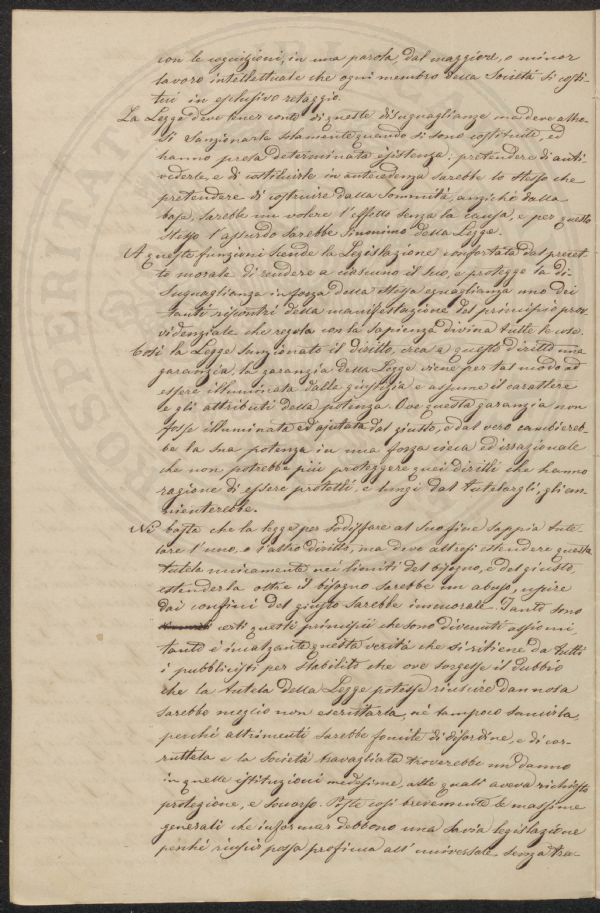 con le cognizioni, in una parola, dal maggiore, o minor
lavoro intellettuale che ogni membro della Società si costi-
tuì in esclusivo retaggio.
La Legge deve tener conto di queste disuguaglianze ma deve altre-
sì sanzionarle solamente quando si sono costituite, ed
hanno presa determinata esistenza: pretendere di anti-
vederle, e di costituirle in antecedenza sarebbe lo stesso che
pretendere di costruire dalla sommità, anzichè dalla
base, sarebbe un volere l'effetto senza la causa, e per questo
stesso l'assurdo sarebbe sinonimo della Legge.
A queste funzioni scende la Legislazione confortata dal precet-
to morale di rendere a ciascuno il suo, e protegge la di-
suguaglianza in forza della stessa eguaglianza uno dei
tanti riscontri della manifestazione del principio prov-
videnziale che regola con la sapienza divina tutte le cose.
Così la Legge sanzionato il diritto, crea a questo diritto una
garanzia, la garanzia della Legge viene per tal modo ad
essere illuminata dalla giustizia e assume il carattere
e gli attributi della potenza. Ove questa garanzia non
fosse illuminata ed ajutata dal giusto, o dal vero cambiereb-
be la sua potenza in una forza cieca ed irrazionale
che non potrebbe più proteggere quei diritti che hanno
ragione di essere protetti, e lungi dal tutelargli, gli an-
nienterebbe.
Nè basta che la legge per sodisfare al suo fine sappia tute-
lare l'uno, o l'altro diritto, ma deve altresì estendere questa
tutela unicamente nei limiti del bisogno, e del giusto,
estenderla oltre il bisogno sarebbe un abuso, uscire
dai confini del giusto sarebbe immorale. Tanto sono
certi questi principii che sono divenuti assiomi,
tanto è incalzante questa verità che si ritiene da tutti
i pubblicisti per stabilito che ove sorgesse il dubbio
che la tutela della Legge potesse riuscire dannosa
sarebbe meglio non esercitarla, nè tampoco sancirla,
perchè altrimenti sarebbe fomite di disordine, e di cor-
ruttela e la Società travagliata troverebbe un danno
in quelle istituzioni medesime, alle quali aveva richiesto
protezione, e soccorso. Poste così brevemente le massime
generali che informar debbono una savia legislazione
perchè riuscir possa proficua all'universale senza tra-